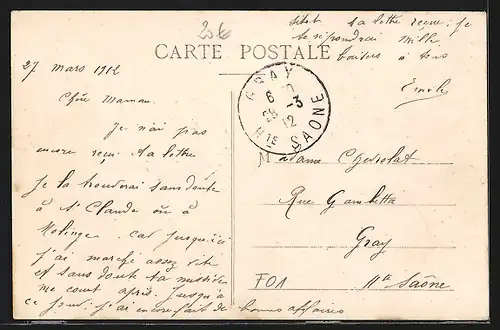 20 €
sitôt ta lettre reçue, je
te répondrai mille
baisers à tous
Emile
CARTE POSTALE
27 mars 1912
Chère Maman.
Je n'ai pas
encore reçu ta lettre
Je la trouverai sans doute
à St Claude ou à
Molinge. car jusqu'ici
j'ai marché assez vite
et sans doute ta missive
me court après. jusqu'à
ce jour j'ai encore fait de bonnes affaires
GRAY
28 -3
12
Hte SAONE
Madame Chevolat
Rue Gambetta
Gray
Hte Saône
F01